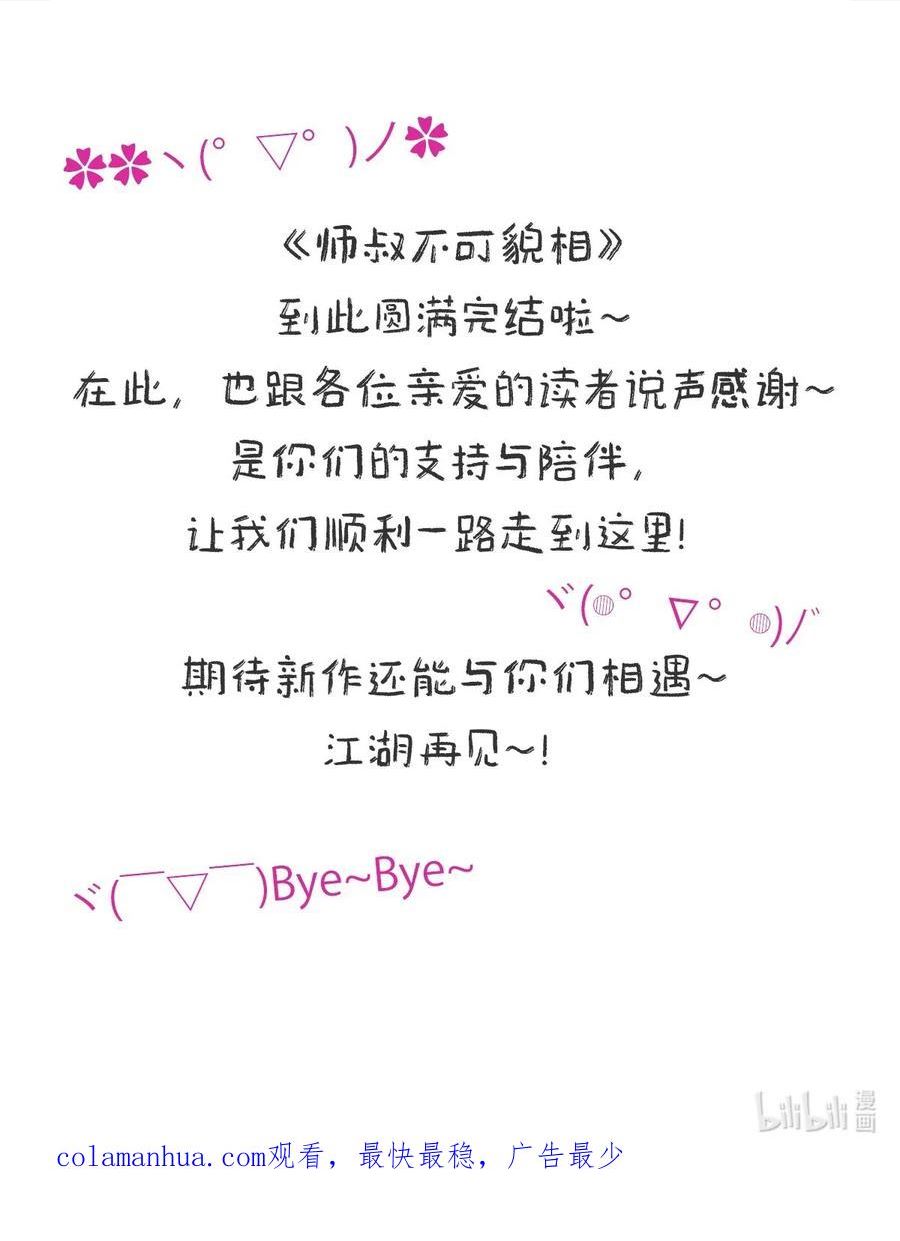 ✿✿ヽ(°▽°)ノ✿
《师叔不可貌相》
到此圆满完结啦~
在此，也跟各位亲爱的读者说声感谢~
是你们的支持与陪伴，
让我们顺利一路走到这里！
ヾ(◍°∇°◍)ノ゙
期待新作还能与你们相遇~
江湖再见~！
ヾ(￣▽￣)Bye~Bye~
bilibili漫画
colamanhua.com观看，最快最稳，广告最少